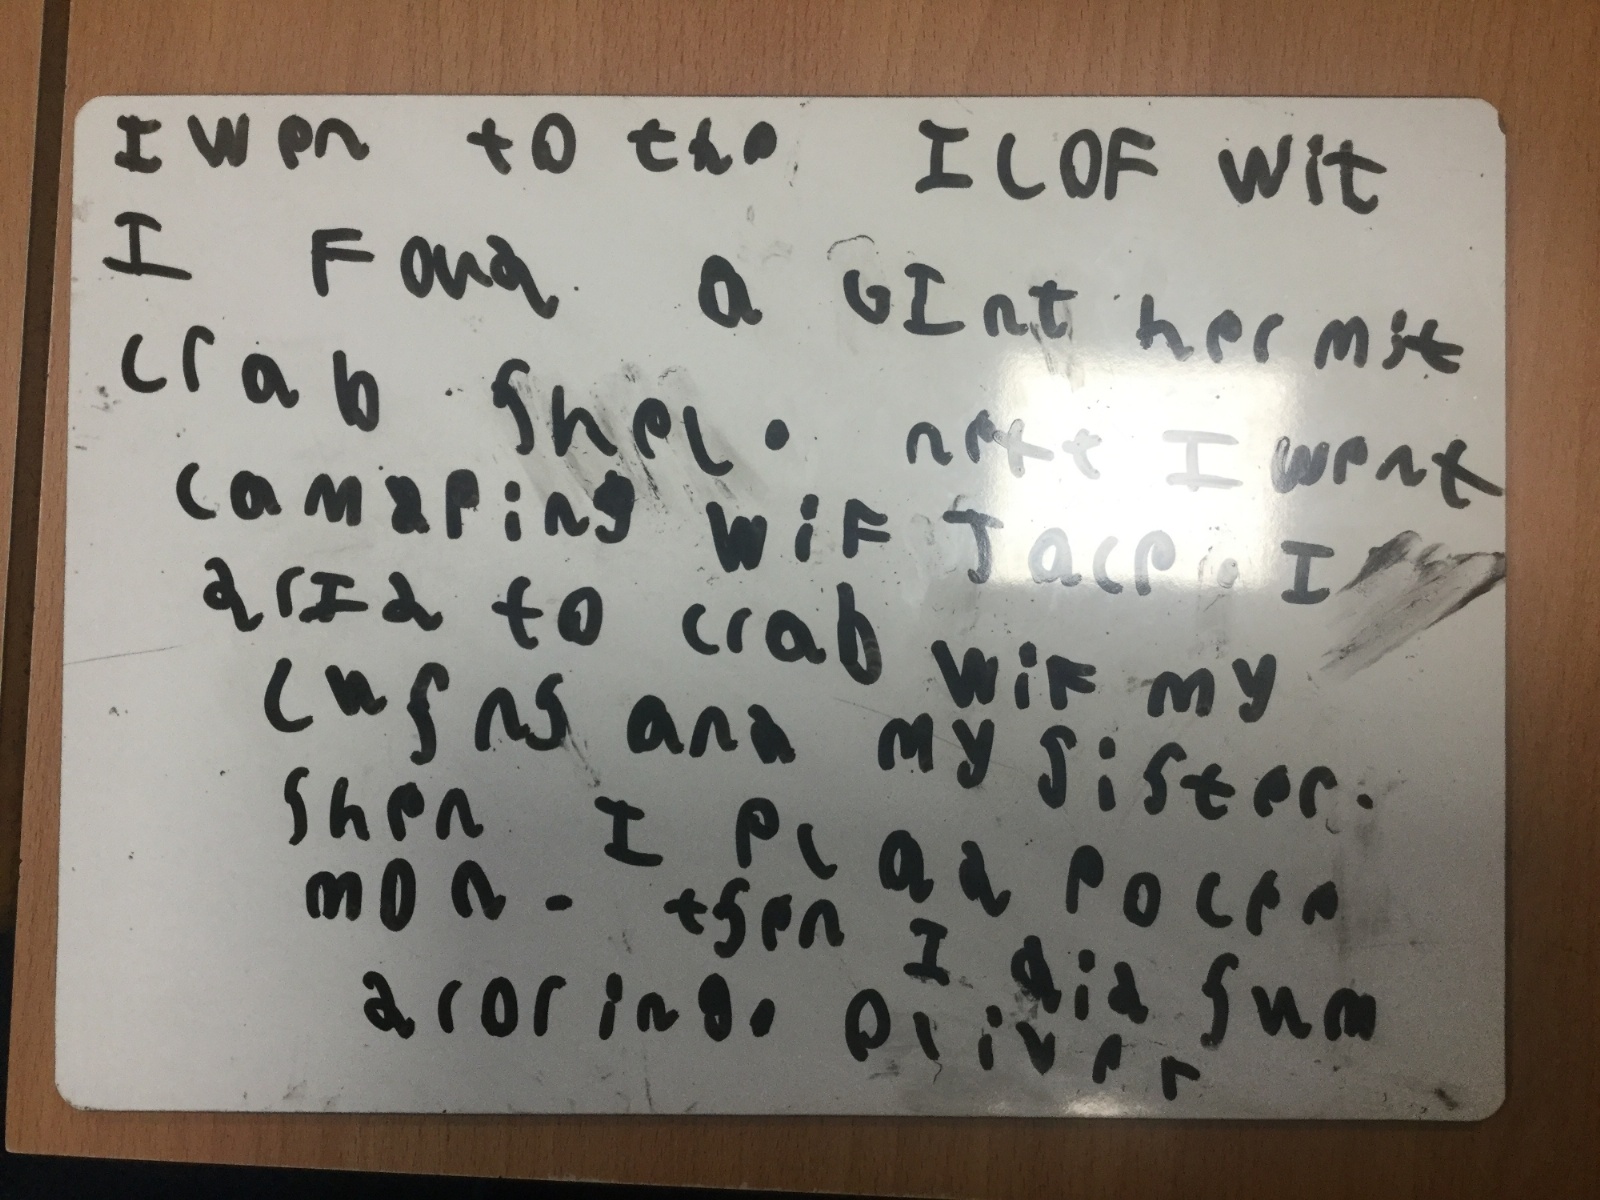 I wen to the ILOF wit
I Foud a GInt hermit
crab shel. next I went
camaping wiF Jace. I
drId to crab wiF my
cusns and my sister.
shen I plad pocee
mon. tsen I did sum
droring. Oliver